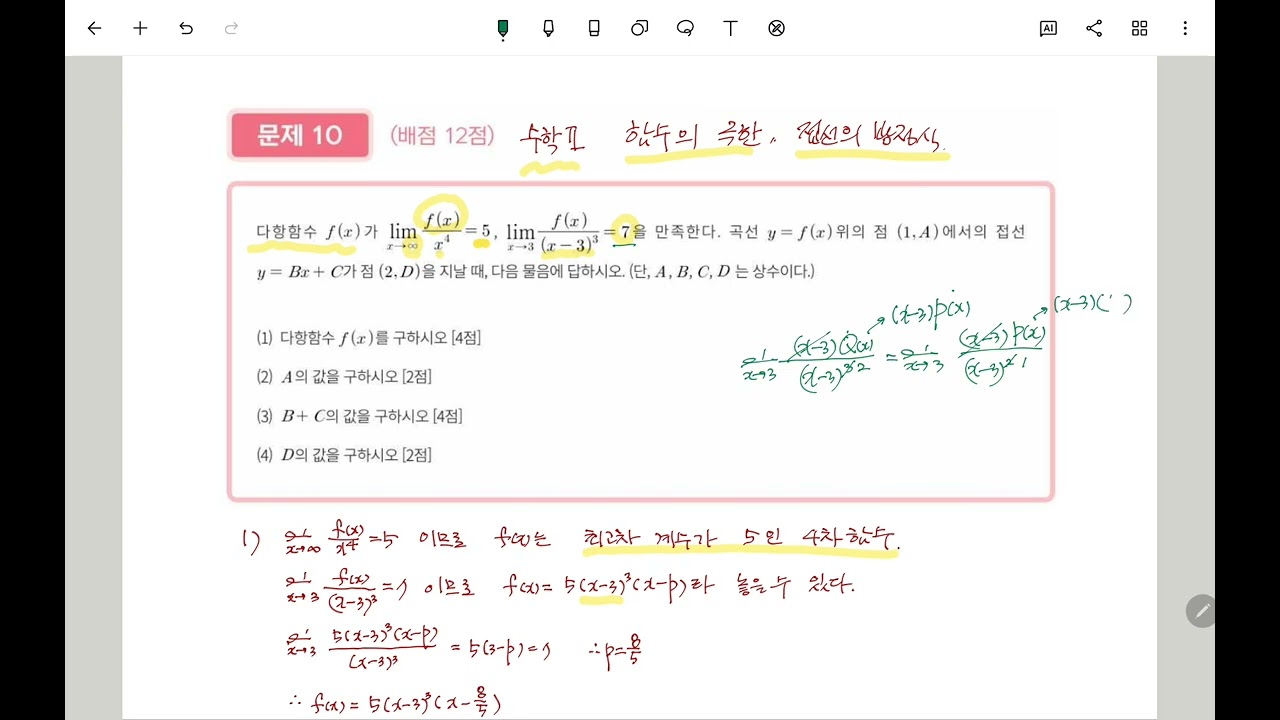 AI
문제 10 (배점 12점) 수학Ⅱ 함수의 극한, 접선의 방정식.
다항함수 f(x)가 lim x→∞ f(x)/x⁴ = 5, lim x→3 f(x)/(x−3)³ = 7을 만족한다. 곡선 y = f(x)위의 점 (1, A)에서의 접선
y = Bx + C가 점 (2, D)을 지날 때, 다음 물음에 답하시오. (단, A, B, C, D 는 상수이다.)
(x-3)p(x) (x-3)( )
(1) 다항함수 f(x)를 구하시오 [4점]
lim x→3 (x-3)Q(x)/(x-3)³ ² = lim x→3 (x-3)p(x)/(x-3)² ¹
(2) A의 값을 구하시오 [2점]
(3) B + C의 값을 구하시오 [4점]
(4) D의 값을 구하시오 [2점]
1) lim x→∞ f(x)/x⁴ = 5 이므로 f(x)는 최고차 계수가 5인 4차함수.
lim x→3 f(x)/(x-3)³ = 7 이므로 f(x) = 5(x-3)³(x-p)라 놓을 수 있다.
lim x→3 5(x-3)³(x-p)/(x-3)³ = 5(3-p) = 7 ∴ p = 8/5
∴ f(x) = 5(x-3)³(x - 8/5)